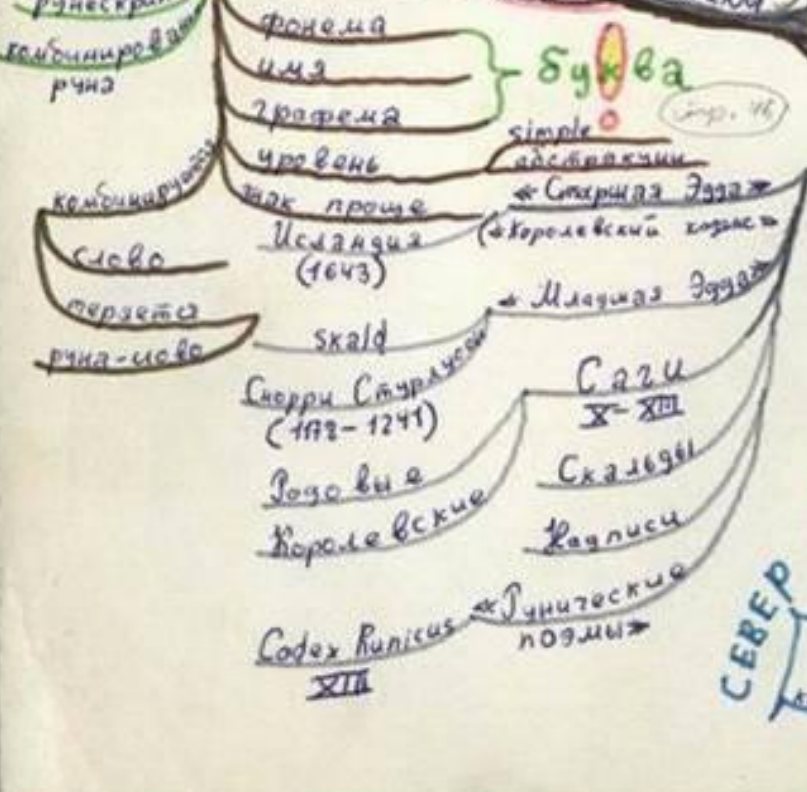 комбинирован
руна
фонема
имя
графема
буква
стр. 46
уровень
simple
абстракции
знак проще
комбинируется
слово
теряется
руна-слово
«Старшая Эдда»
(«Королевский кодекс»
Исландия
(1643)
«Младшая Эдда»
skald
Снорри Стурлусон
(1178-1241)
Саги
X-XIII
Родовые
Королевские
Скальды
Надписи
«Рунические
поэмы»
Codex Runicus
XIII
СЕВЕР